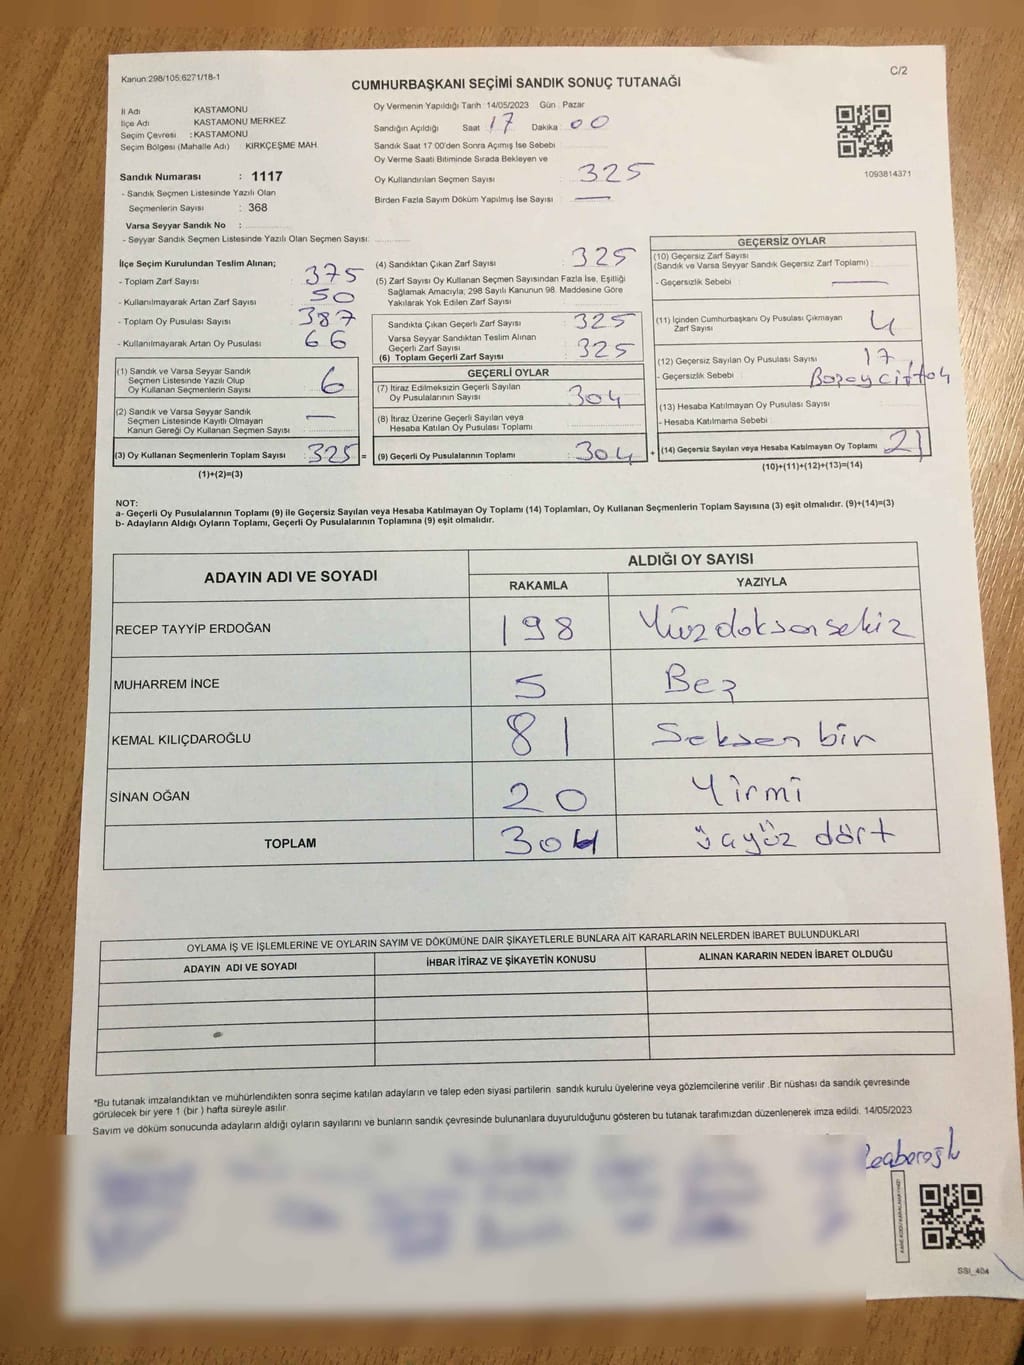 Kanun:298/105;6271/18-1
C/2
CUMHURBAŞKANI SEÇİMİ SANDIK SONUÇ TUTANAĞI
İl Adı KASTAMONU
İlçe Adı KASTAMONU MERKEZ
Seçim Çevresi : KASTAMONU
Seçim Bölgesi (Mahalle Adı) : KIRKÇEŞME MAH.
Sandık Numarası : 1117
- Sandık Seçmen Listesinde Yazılı Olan
Seçmenlerin Sayısı : 368
Varsa Seyyar Sandık No :
- Seyyar Sandık Seçmen Listesinde Yazılı Olan Seçmen Sayısı:
Oy Vermenin Yapıldığı Tarih :14/05/2023 Gün : Pazar
Sandığın Açıldığı Saat 17 Dakika : 00
Sandık Saat 17:00'den Sonra Açımış İse Sebebi
Oy Verme Saati Bitiminde Sırada Bekleyen ve
Oy Kullandırılan Seçmen Sayısı : 325
Birden Fazla Sayım Döküm Yapılmış İse Sayısı : —
1093814371
İlçe Seçim Kurulundan Teslim Alınan;
- Toplam Zarf Sayısı : 375
- Kullanılmayarak Artan Zarf Sayısı : 50
- Toplam Oy Pusulası Sayısı : 387
- Kullanılmayarak Artan Oy Pusulası : 66
(1) Sandık ve Varsa Seyyar Sandık
Seçmen Listesinde Yazılı Olup
Oy Kullanan Seçmenlerin Sayısı : 6
(2) Sandık ve Varsa Seyyar Sandık
Seçmen Listesinde Kayıtlı Olmayan
Kanun Gereği Oy Kullanan Seçmen Sayısı : —
(3) Oy Kullanan Seçmenlerin Toplam Sayısı : 325 =
(1)+(2)=(3)
(4) Sandıktan Çıkan Zarf Sayısı : 325
(5) Zarf Sayısı Oy Kullanan Seçmen Sayısından Fazla İse, Eşitliği
Sağlamak Amacıyla; 298 Sayılı Kanunun 98. Maddesine Göre
Yakılarak Yok Edilen Zarf Sayısı :
Sandıkta Çıkan Geçerli Zarf Sayısı : 325
Varsa Seyyar Sandıktan Teslim Alınan
Geçerli Zarf Sayısı
(6) Toplam Geçerli Zarf Sayısı : 325
GEÇERLİ OYLAR
(7) İtiraz Edilmeksizin Geçerli Sayılan
Oy Pusulalarının Sayısı : 304
(8) İtiraz Üzerine Geçerli Sayılan veya
Hesaba Katılan Oy Pusulası Toplamı :
(9) Geçerli Oy Pusulalarının Toplamı : 304 +
GEÇERSİZ OYLAR
(10) Geçersiz Zarf Sayısı
(Sandık ve Varsa Seyyar Sandık Geçersiz Zarf Toplamı) :
- Geçersizlik Sebebi : —
(11) İçinden Cumhurbaşkanı Oy Pusulası Çıkmayan
Zarf Sayısı : 4
(12) Geçersiz Sayılan Oy Pusulası Sayısı : 17
- Geçersizlik Sebebi :
(13) Hesaba Katılmayan Oy Pusulası Sayısı :
- Hesaba Katılmama Sebebi :
(14) Geçersiz Sayılan veya Hesaba Katılmayan Oy Toplamı : 21
(10)+(11)+(12)+(13)=(14)
NOT:
a- Geçerli Oy Pusulalarının Toplamı (9) ile Geçersiz Sayılan veya Hesaba Katılmayan Oy Toplamı (14) Toplamları, Oy Kullanan Seçmenlerin Toplam Sayısına (3) eşit olmalıdır. (9)+(14)=(3)
b- Adayların Aldığı Oyların Toplamı, Geçerli Oy Pusulalarının Toplamına (9) eşit olmalıdır.
ADAYIN ADI VE SOYADI ALDIĞI OY SAYISI
RAKAMLA YAZIYLA
RECEP TAYYİP ERDOĞAN 198 Yüzdoksansekiz
MUHARREM İNCE 5 Beş
KEMAL KILIÇDAROĞLU 81 Seksen bir
SİNAN OĞAN 20 Yirmi
TOPLAM 304 üçyüz dört
OYLAMA İŞ VE İŞLEMLERİNE VE OYLARIN SAYIM VE DÖKÜMÜNE DAİR ŞİKAYETLERLE BUNLARA AİT KARARLARIN NELERDEN İBARET BULUNDUKLARI
ADAYIN ADI VE SOYADI İHBAR İTİRAZ VE ŞİKAYETİN KONUSU ALINAN KARARIN NEDEN İBARET OLDUĞU
*Bu tutanak imzalandıktan ve mühürlendikten sonra seçime katılan adayların ve talep eden siyasi partilerin sandık kurulu üyelerine veya gözlemcilerine verilir .Bir nüshası da sandık çevresinde
görülecek bir yere 1 (bir ) hafta süreyle asılır
Sayım ve döküm sonucunda adayların aldığı oyların sayılarını ve bunların sandık çevresinde bulunanlara duyurulduğunu gösteren bu tutanak tarafımızdan düzenlenerek imza edildi. 14/05/2023
SSI_404